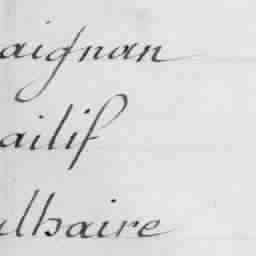 aignan
ailif
ulhaire